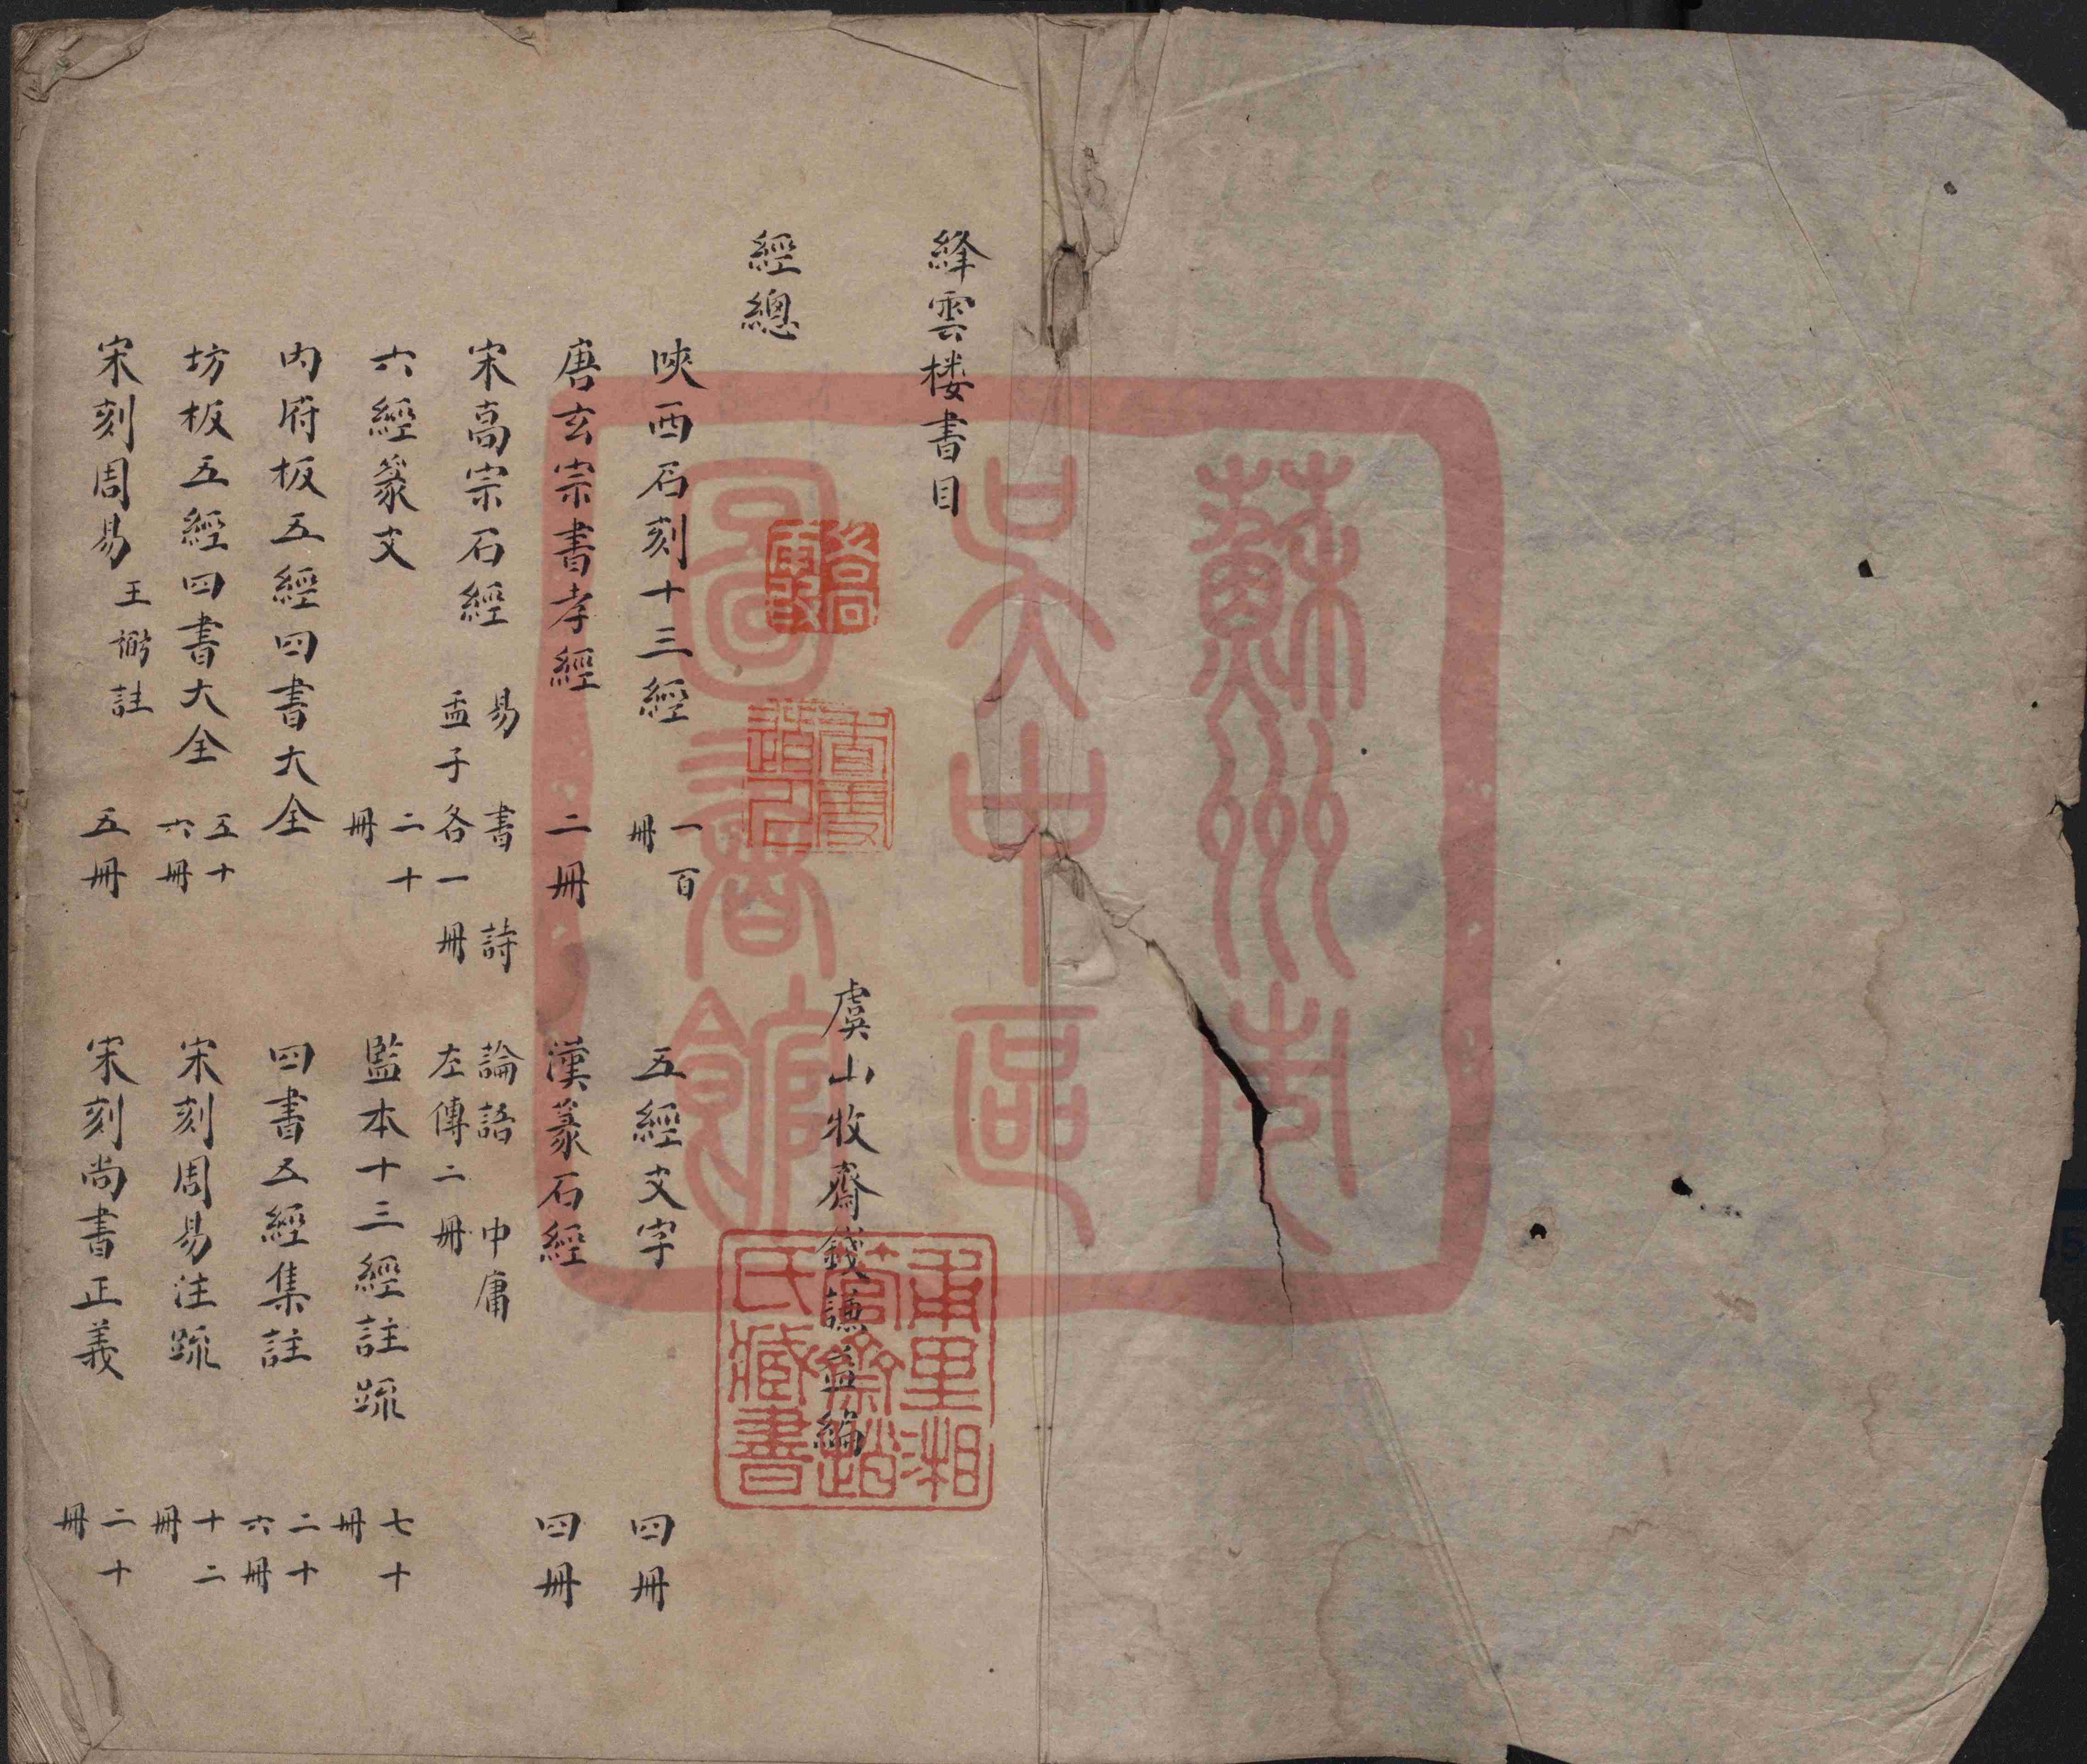 絳雲楼書目
虞山牧齋錢謙益編
經總
陝西石刻十三經 一百冊 五經文字 四冊
唐玄宗書孝經 二冊 漢篆石經 四冊
宋高宗石經 易 書 詩 論語 中庸 孟子各一冊 左傳二冊
六經篆文 二十冊 監本十三經註疏 七十冊
内府板五經四書大全 四書五經集註 二十六冊
坊板五經四書大全 五十六冊 宋刻周易注疏 十二冊
宋刻周易 王弼註 五冊 宋刻尚書正義 二十冊
蘇州市
吳中區
圖書館
甫里湘
管齋趙
氏臧書